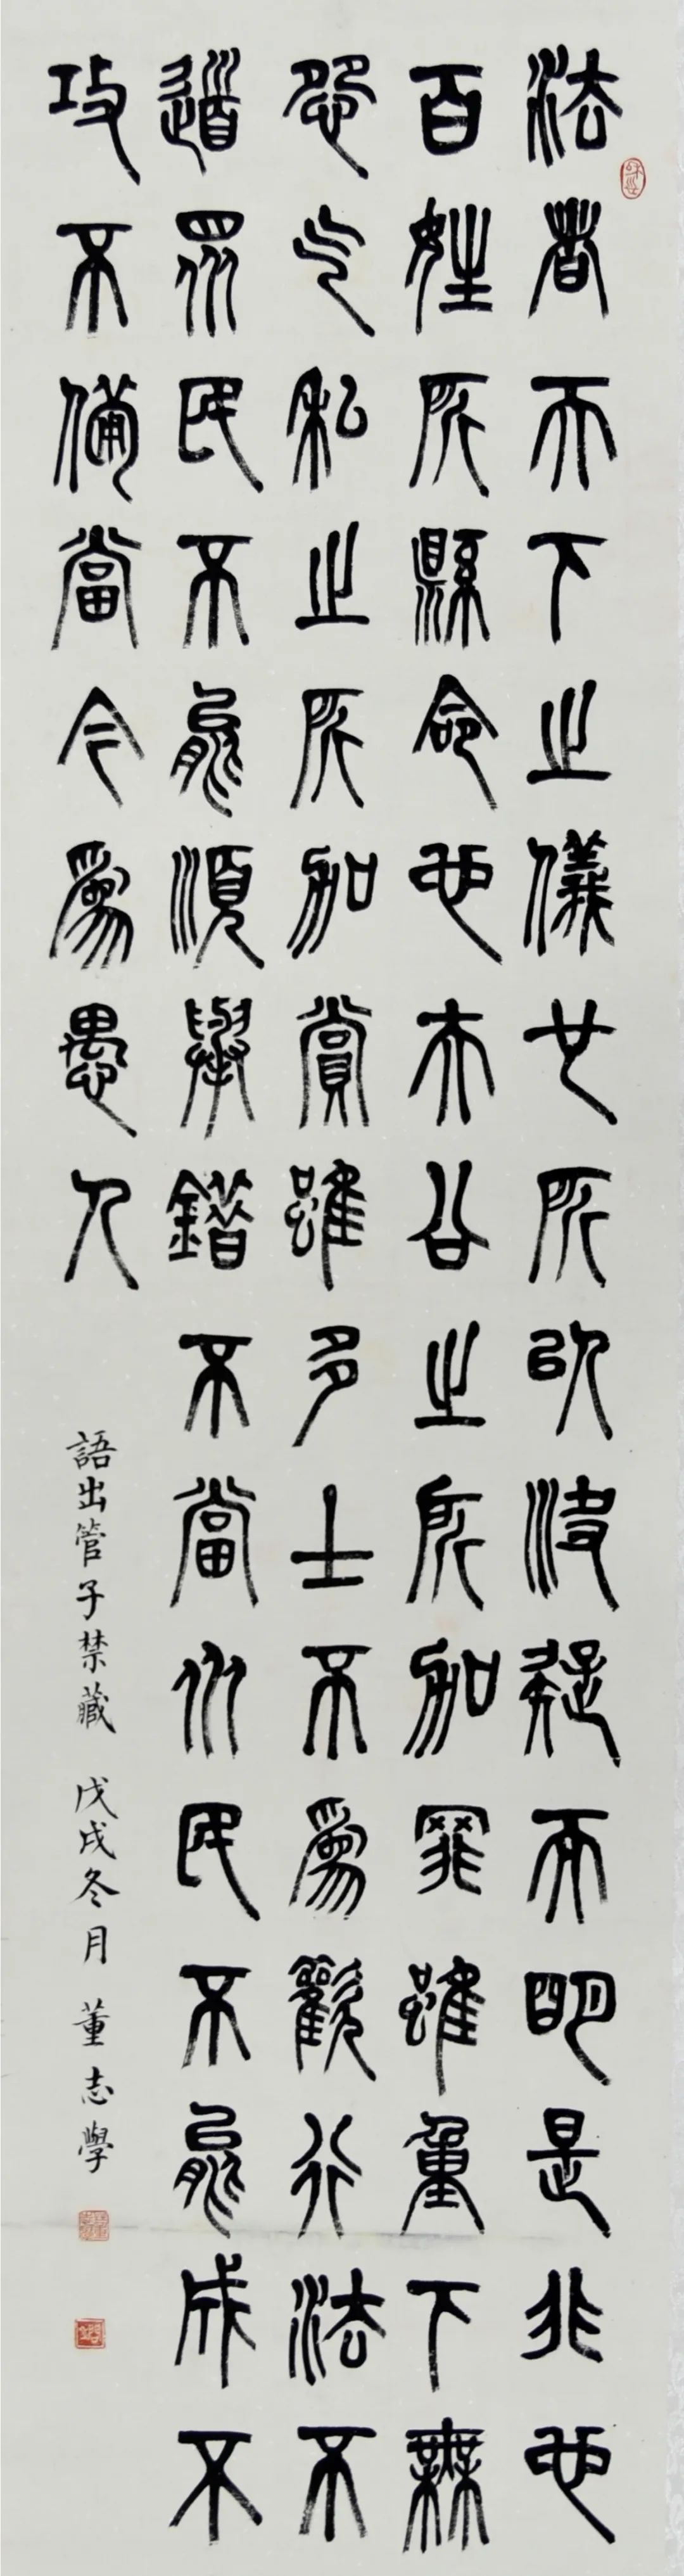 法者天下之儀也所以決疑而明是非也
百姓所縣命也夫公之所加罪雖重下無
怨气私之所加賞雖多士不為歡行法不
道眾民不能順舉錯不當眾民不能成不
攻不備當今為愚人
語出管子禁藏 戊戌冬月 董志學